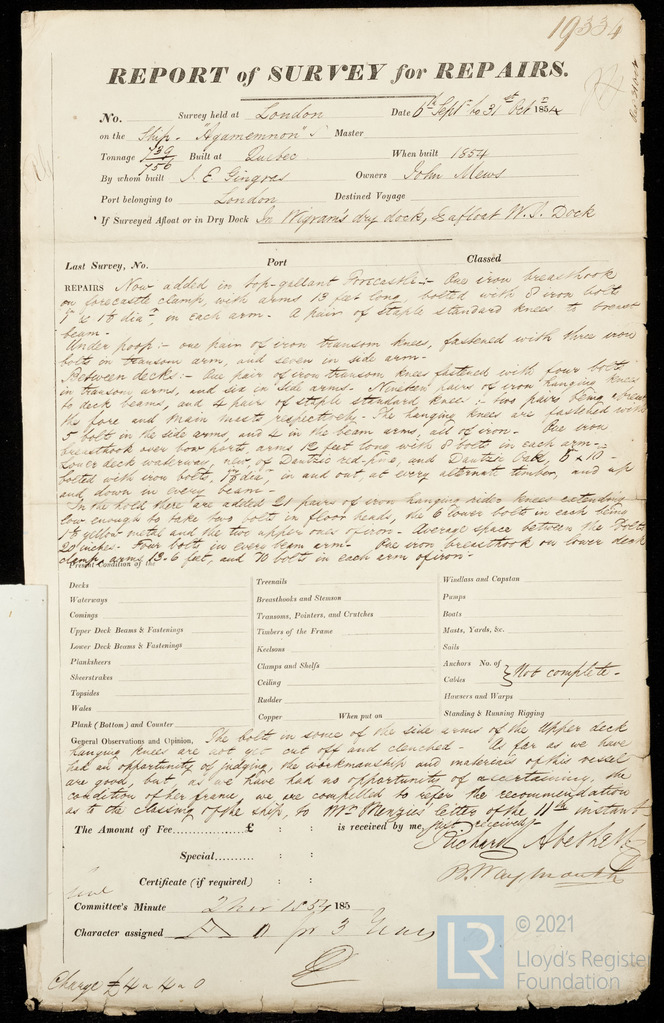 19334
REPORT of SURVEY for REPAIRS.
No. Survey held at London Date 6th Septr to 31st Octr 1854
on the Ship "Agamemnon" Master
Tonnage 739 / 756 Built at Quebec When built 1854
By whom built J. E. Gingras Owners John Mews
Port belonging to London Destined Voyage
If Surveyed Afloat or in Dry Dock In Wigram's dry dock, & afloat W. I. Dock
Last Survey, No. Port Classed
REPAIRS Now added in top-gallant Forecastle:- One iron breasthook
on forecastle clamp, with arms 13 feet long, bolted with 8 iron bolts
1" & 1⅛ diar, in each arm. A pair of staple standard knees to breast
beam.
Under poop:- one pair of iron transom knees, fastened with three iron
bolts in transom arm, and seven in side arm.
Between decks:- One pair of iron transom knees fastened with four bolts
in transom arms, and six in side arms. Nineteen pairs of iron hanging knees
to deck beams, and 4 pairs of staple standard knees: two pairs being abreast
the fore and main masts respectively. The hanging knees are fastened with
5 bolts in the side arms, and 4 in the beam arms, all of iron. One iron
breasthook over bow ports, arms 12 feet long with 8 bolts in each arm.
Lower deck waterway, new of Dantzic red pine, and Dantzic Oak,
bolted with iron bolts, 1⅛ diar, in and out, at every alternate timber, and up
and down in every beam.
In the hold there are added 21 pairs of iron hanging rider knees extending
low enough to take two bolts in floor heads, the 6 lower bolts in each being
1⅛ yellow metal and the two upper ones of iron. Average space between the bolts
20 inches. Four bolts in every beam arm. One iron breasthook on lower deck
clamp, arms 13.6 feet, and 10 bolts in each arm of iron.
Present Condition of the
Decks
Waterways
Comings
Upper Deck Beams & Fastenings
Lower Deck Beams & Fastenings
Planksheers
Sheerstrakes
Topsides
Wales
Plank (Bottom) and Counter
Treenails
Breasthooks and Stemson
Transoms, Pointers, and Crutches
Timbers of the Frame
Keelsons
Clamps and Shelfs
Ceiling
Rudder
Copper When put on
Windlass and Capstan
Pumps
Boats
Masts, Yards, &c.
Sails
Anchors No. of
Cables } Not complete.
Hawsers and Warps
Standing & Running Rigging
General Observations and Opinion, The bolts in some of the side arms of the Upper deck
hanging knees are not yet cut off and clenched. As far as we have
had an opportunity of judging, the workmanship and materials of this vessel
are good, but as we have had no opportunity of ascertaining the
condition of her frame, we are compelled to refer the recommendation
as to the classing of the ship, to Mr Menzies' letter of the 11th instant
just received.
The Amount of Fee £ : : is received by me,
Richard
Special : :
B. Waymouth
Certificate (if required) : :
Committee's Minute 2 Nov 1854 185
Character assigned A 1 for 3 Years
Charge £4 " 4 " 0
© 2021
LR
Lloyd's Register
Foundation